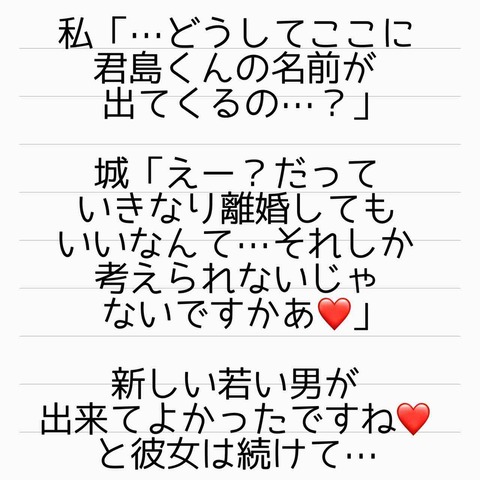 私「…どうしてここに
君島くんの名前が
出てくるの…？」
城「えー？だって
いきなり離婚しても
いいなんて…それしか
考えられないじゃ
ないですかあ❤️」
新しい若い男が
出来てよかったですね❤️
と彼女は続けて…